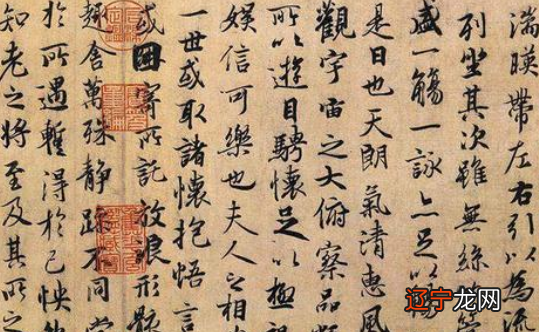 湍暎帶左右引以為流
列坐其次雖無絲
盛一觴一詠亦足以暢
是日也天朗氣清惠風
觀宇宙之大俯察品類
所以遊目騁懷足以極
娛信可樂也夫人之相
一世或取諸懷抱悟言
或因寄所託放浪形骸
趣舍萬殊靜躁不同當
於所遇暫得於己怏
知老之將至及其所之
辽宁龙网